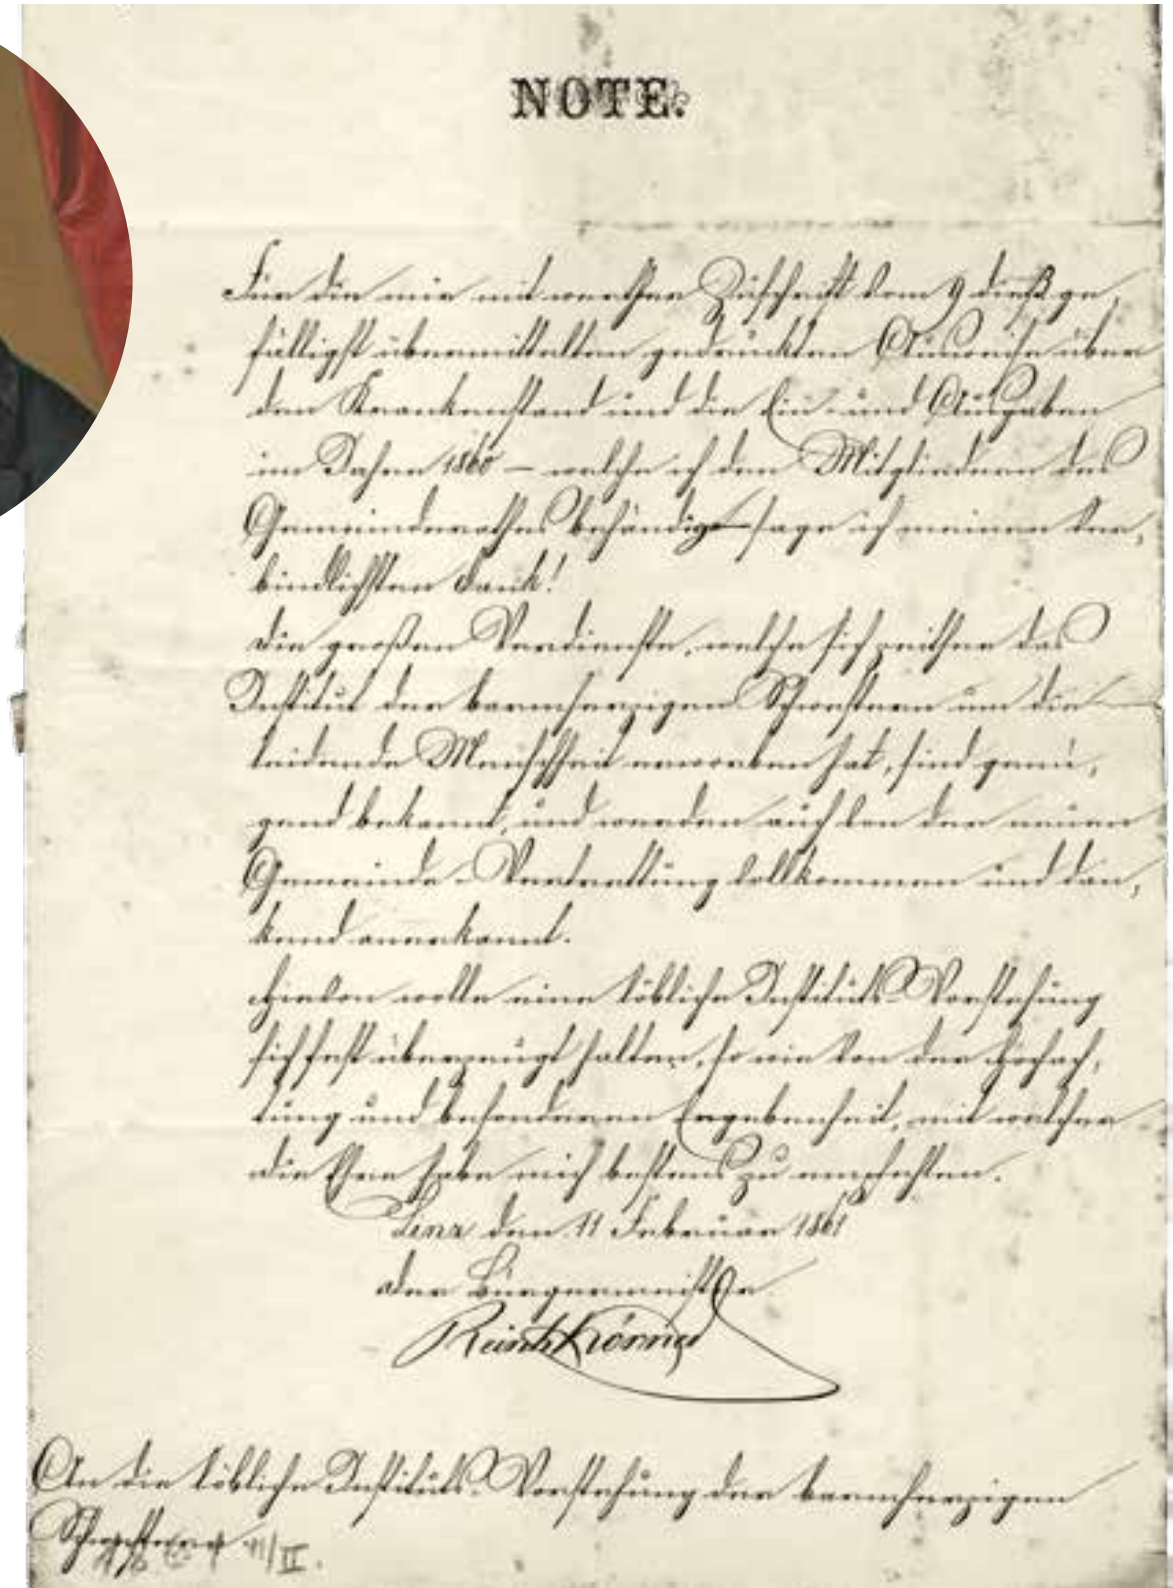 NOTE.
Für die mir mit werther Zuschrift vom 9 dieß ge,
fälligst übermittelten gedruckten Ausweise über
den Krankenstand und die Ein- und Ausgaben
im Jahre 1860 – welche ich den Mitgliedern des
Gemeinderathes behändigt sage ich meinen ver,
bindlichsten Dank!
Die großen Verdienste, welche sich seither das
Institut der barmherzigen Schwestern um die
leidende Menschheit erworben hat, sind genü,
gend bekannt, und werden auch von der neuen
Gemeinde-Vertrettung vollkommen und dan,
kend anerkannt.
Hievon wolle eine löbliche Instituts-Vorstehung
sich fest überzeugt halten, so wie von der Hochach,
tung und besonderen Ergebenheit, mit welcher
die Ehre habe mich bestens zu empfehlen.
Linz den 11 Februar 1861
Der Bürgermeister
An die löbliche Instituts-Vorstehung der barmherzigen
Schwestern